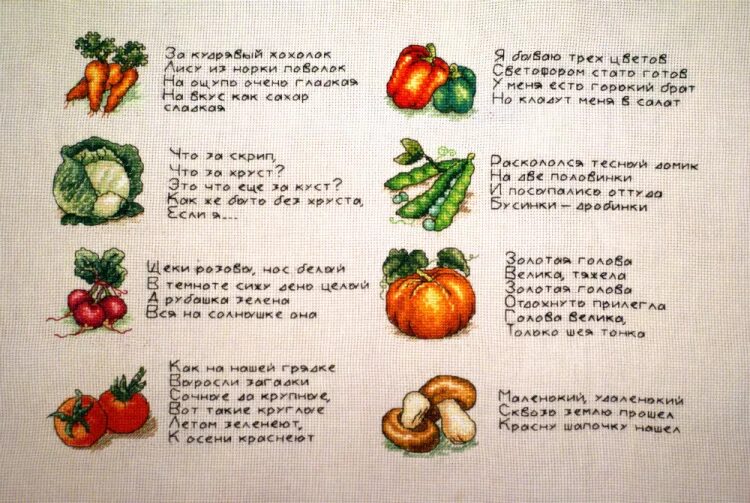 За кудрявый хохолок
Лису из норки поволок
На ощупь очень гладкая
На вкус как сахар
сладкая
Что за скрип,
Что за хруст?
Это что еще за куст?
Как же быть без хруста,
Если я...
Щеки розовы, нос белый
В темноте сижу день целый
А рубашка зелена
Вся на солнышке она
Как на нашей грядке
Выросли загадки
Сочные да крупные,
Вот такие круглые
Летом зеленеют,
К осени краснеют
Я бываю трех цветов
Светофором стать готов
У меня есть горький брат
Но кладут меня в салат
Раскололся тесный домик
На две половинки
И посыпались оттуда
Бусинки – дробинки
Золотая голова
Велика, тяжела
Золотая голова
Отдохнуть прилегла
Голова велика,
Только шея тонка
Маленький, удаленький
Сквозь землю прошел
Красну шапочку нашел